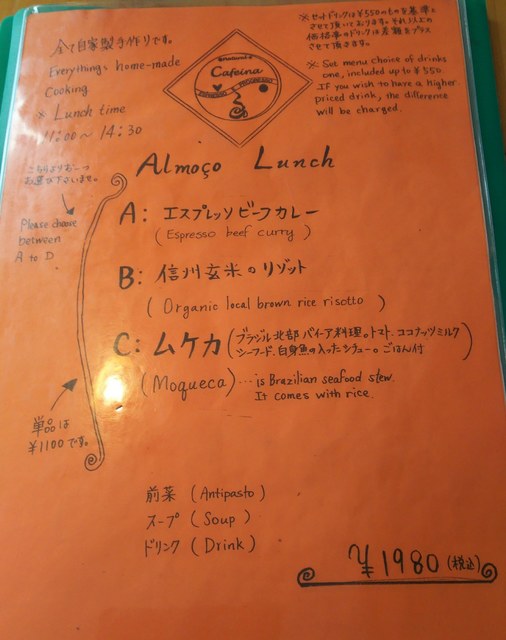 全て自家製手作りです。
Everything's home-made
Cooking
* Lunch time
11:00〜14:30
Cafeína
※セットドリンクは¥550のものを基準と
させて頂いております。それ以上の
価格帯のドリンクは差額をプラス
させて頂きます。
※ Set menu choice of drinks
one, included up to ¥550
If you wish to have a higher
priced drink, the difference
will be charged.
Almoço Lunch
こちらよりお一つ
お選び下さいませ。
Please choose
between
A to D
A: エスプレッソビーフカレー
(Espresso beef curry)
B: 信州玄米のリゾット
(Organic local brown rice risotto)
C: ムケカ(ブラジル北部バイーア料理。トマト、ココナッツミルク
シーフード、白身魚の入ったシチュー。ごはん付)
(Moqueca)… is Brazilian seafood stew.
It comes with rice.
単品は
¥1100です。
前菜 (Antipasto)
スープ (Soup)
ドリンク (Drink)
¥1980(税込)